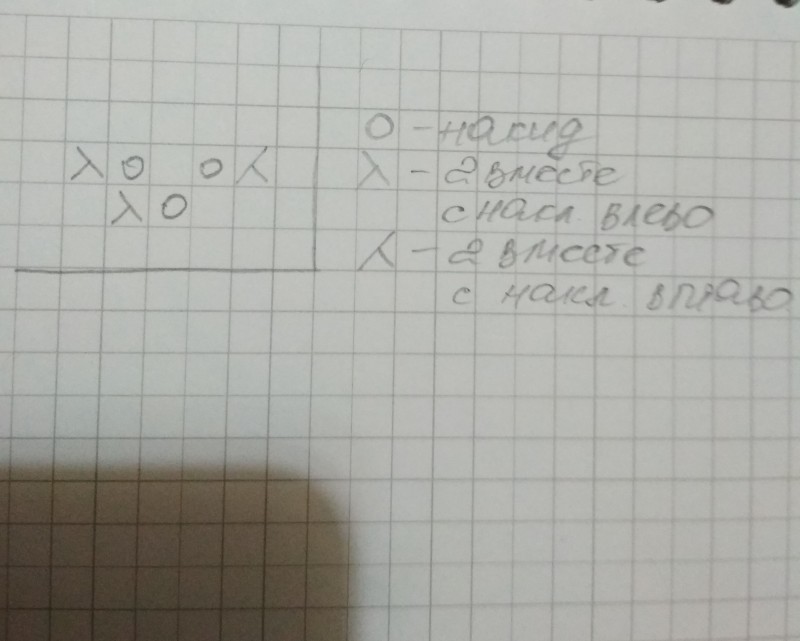 O - накид
λ O O ⅄ λ - 2 вместе
λ O с накл. влево
⅄ - 2 вместе
с накл. вправо